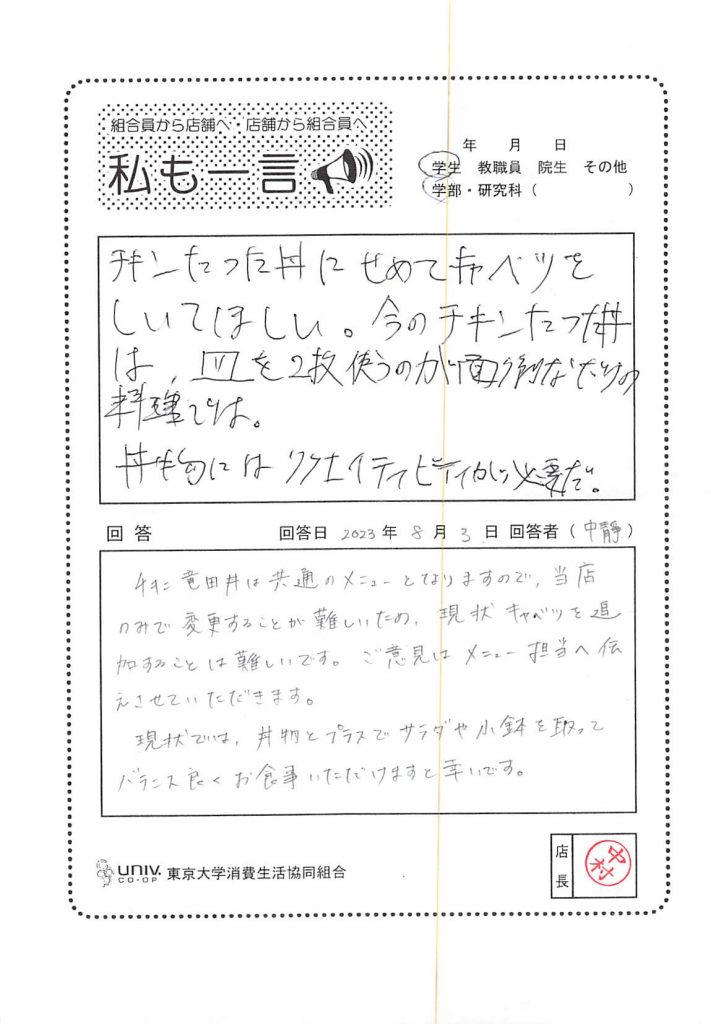 組合員から店舗へ・店舗から組合員へ
私も一言
年 月 日
学生 教職員 院生 その他
学部・研究科（ ）
チキンたつた丼にせめてキャベツを
しいてほしい。今のチキンたつた丼
は、皿を2枚使うのが面倒なだけの
料理では。
丼物にはクリエイティビティが必要だ。
回答 回答日 2023年 8月 3日 回答者（中靜）
チキン竜田丼は共通のメニューとなりますので、当店
のみで変更することが難しいため、現状キャベツを追
加することは難しいです。ご意見はメニュー担当へ伝
えさせていただきます。
現状では、丼物とプラスでサラダや小鉢を取って
バランス良くお食事いただけますと幸いです。
UNIV. CO-OP 東京大学消費生活協同組合
店長 中村